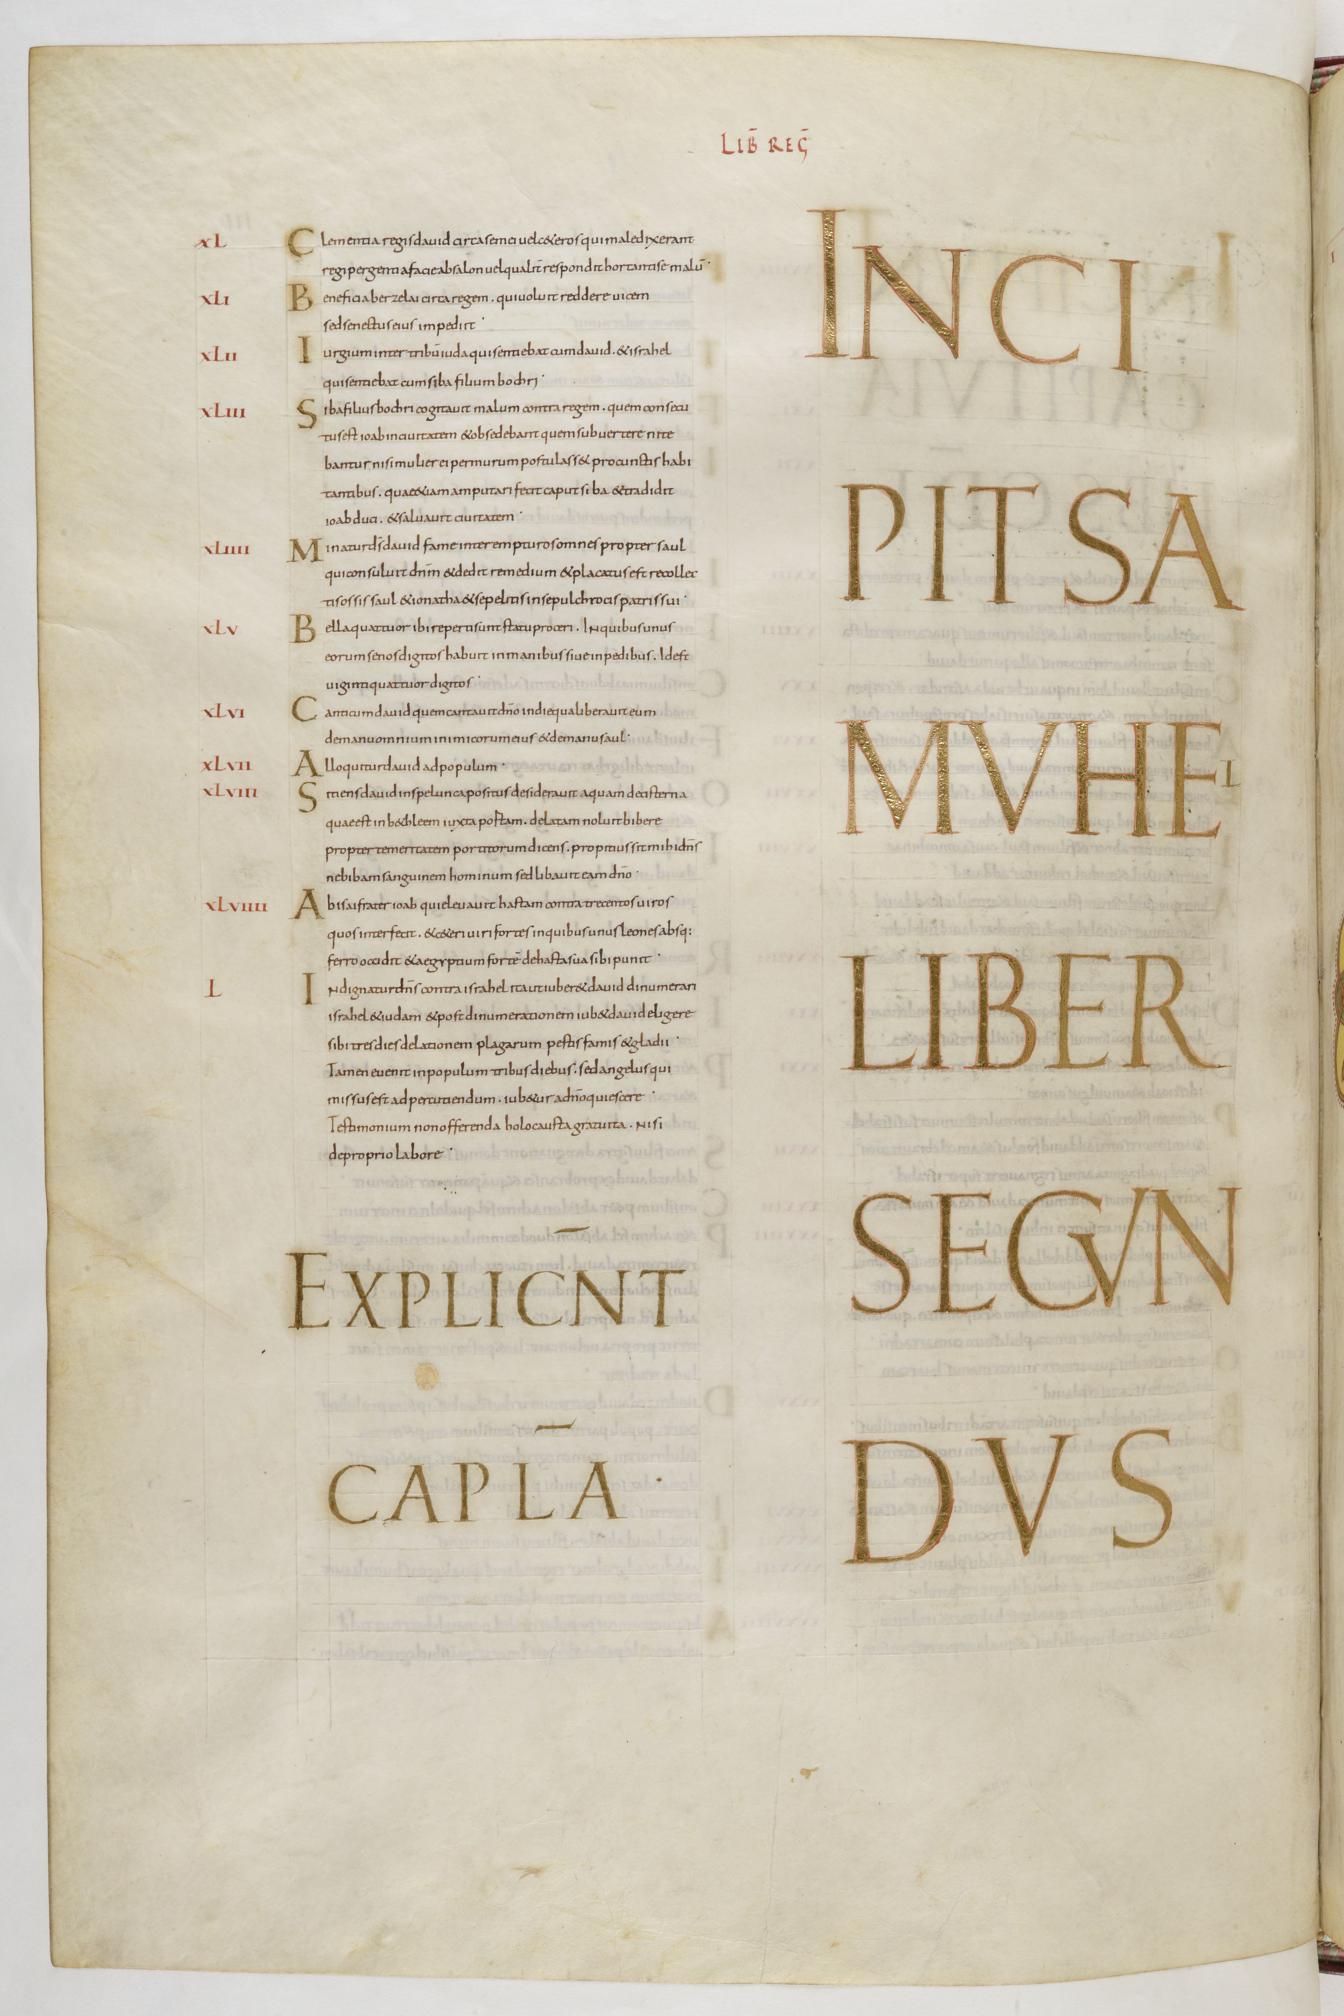 LIB̄ REḠ
XL Clementia regis david circa semei vel c&eros qui maledixerant
regi pergenti a facie absalon vel qualit̄ respondit hortantise malū
XLI Beneficia berzelai circa regem . qui voluit reddere vicem
sed senectus eius impedict
XLII Iurgium inter tribū iuda qui sentiebat cum david . & israhel
qui sentiebat cum siba filium bochri
XLIII Siba filius bochri cogitavit malum contra regem . quem consecu
tus est ioab in civitatem & obsedebant quem subvertere nite
bantur nisi mulier ei per murum postulass& pro cunctis habi
tantibus . quae &iam amputari fecit caput siba & tradidit
ioab duci . & salvavit civitatem
XLIIII Minatur d̄s david fame interempturos omnes propter saul
qui consuluit dnm̄ & dedit remedium & placatus est recollec
tis ossis saul & ionatha & sepeltis in sepulchrocis patris sui
XLV Bella quattuor ibi repertis sunt statu proceri . In quibus unus
eorum senos digitos habuit in manibus sive in pedibus . Id est
viginti quattuor digitos
XLVI Canticum david quem cantavit dn̄o in die qua liberavit eum
de manu omnium inimicorum eius & de manu saul
XLVII Alloquitur david ad populum
XLVIII Sitiens david in spelunca positus desideravit aquam de cisterna
quae est in b&hleem iuxta portam . delatam noluit bibere
propter temeritatem portitorum dicens . propitius sit mihi dn̄s
ne bibam sanguinem hominum sed libavit eam dn̄o
XLVIIII Abisai frater ioab qui elevavit hastam contra trecentos viros
quos interfecit . & c&eri viri fortes in quibus unus leones absq:
ferro occidit & aegyptium fortē de hasta sua sibi punit
L Indignatur dn̄s contra israhel ita ut iuber& david dinumerari
israhel & iudam & post dinumerationem iub& david eligere
sibi tres dies delationem plagarum pestis famis & gladii
Tamen evenit in populum tribus diebus . sed angelus qui
missus est ad percutiendum . iub&ur a dn̄o quiescere
Testimonium non offerenda holocausta gratuita . nisi
de proprio labore
EXPLICN̄T
CAPL̄A ·
INCI
PIT SA
MVHEL
LIBER
SECVN
DVS